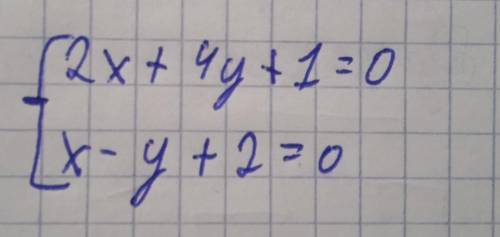 2x + 4y + 1 = 0
x - y + 2 = 0